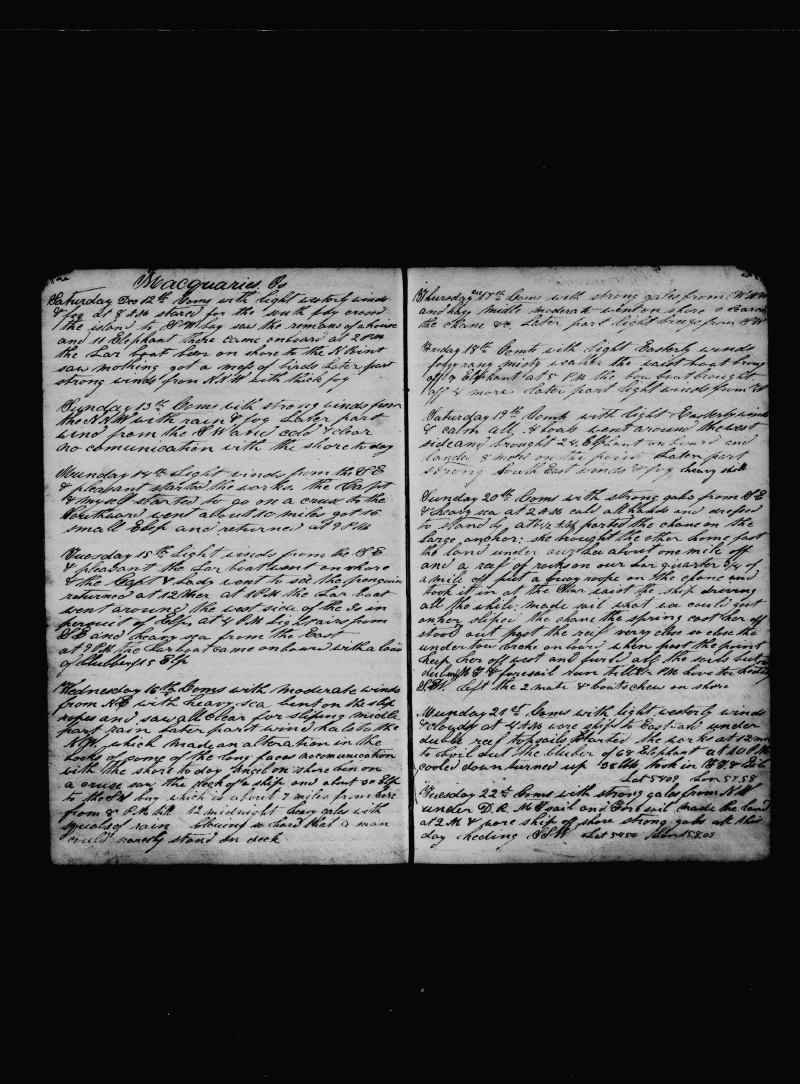 Macquaries Is
Saturday Dec 12th Coms with light westerly winds
& fog at 8 AM stared for the south foly crosed
the island to S W bay saw the remans of a house
and 11 Elephant there came onboard at 2 PM
the Lar boat been on shore to the N Point
saw nothing got a mess of birds Later part
strong winds from N N W with thick fog
Sunday 13th Coms with strong winds from
the N N W with rain & fog Later part
wind from the S W and cold & clear
no comunication with the shore to day
Munday 14th Light winds from the S E
& pleasant started the works. the Capt
& myself started to go on a cruse to the
Southward went about 10 miles got 16
small Elep and returned at 9 PM
Tuesday 15th Light winds from the S E
& pleasant the Lar boat went on shore
& the Capt & Lady went to see the penguin
returned at 12 Mer at 1 PM the Lar boat
went around the west side of the Is in
persuit of Elep. at 4 PM Light airs from
S E and heavy sea from the East
at 9 PM the Lar boat came on board with a load
of blubber 15 Elep
Wednesday 16th Coms with moderate winds
from N E with heavy sea bent on the slip
ropes and saw all clear for sliping middle
part rain Later part wind haled to the
N W which made an alteration in the
looks of some of the long faces no comunication
with the shore to day Angel on shore ben on
a cruse saw the deck of a ship and about 30 Elep
to the N bay which is about 7 miles from here
from 8 PM till 12 midnight heavy gales with
squals of rain blowing so hard that a man
could scarcely stand on deck
Thursday 17th Coms with strong gales from W N W
and hazy midle moderate went on shore & cleared
the chane &c. Later part light breze from S W
Friday 18th Comts with light Easterly winds
fogy rany misty weather the waist boat brong
off 9 Elephant at 5 PM the bow boat brought
off 4 more later part light winds from
Saturday 19th Comts with light Easterly winds
& calm all 3 boats went around the west
side and brought 28 Elephant on board and
landed 8 more on the point Later part
strong South East winds & fog heavy
Sunday 20th Coms with strong gales from S E
& heavy sea at 2 AM cald all hands and dressed
to stand by at 4 AM parted the chane on the
large anchor; she brought the other home past
the land under our lee about one mile off
and a reef of rocks on our Lar quarter 3/4 of
a mile off put a buoy rope on the chane and
took it in at the Star waist the ship driving
all the while; made sail what we could goot
on her sliped the chane the spring cast her off
stood out past the reef verry close so close the
under tow broke on board when past the point
kept her off west and furld all the sails but
S E W. Left the 2 mate & boats crew on shore
Munday 21st Coms with light westerly winds
& cloudy at 4 AM wore ship to Eastard under
duble reef topsails started the works at 12
to boyil out the bluber of 68 Elephant at 10 PM
cooled down burned up
Lat 54 09 Lon 57 58
Tuesday 22th Coms with strong gales from N W
under D. R. M T sail and Fore sail made the land
at 2 M & wore ship of shore strong gales all this
day heding S S W Lat 54 50